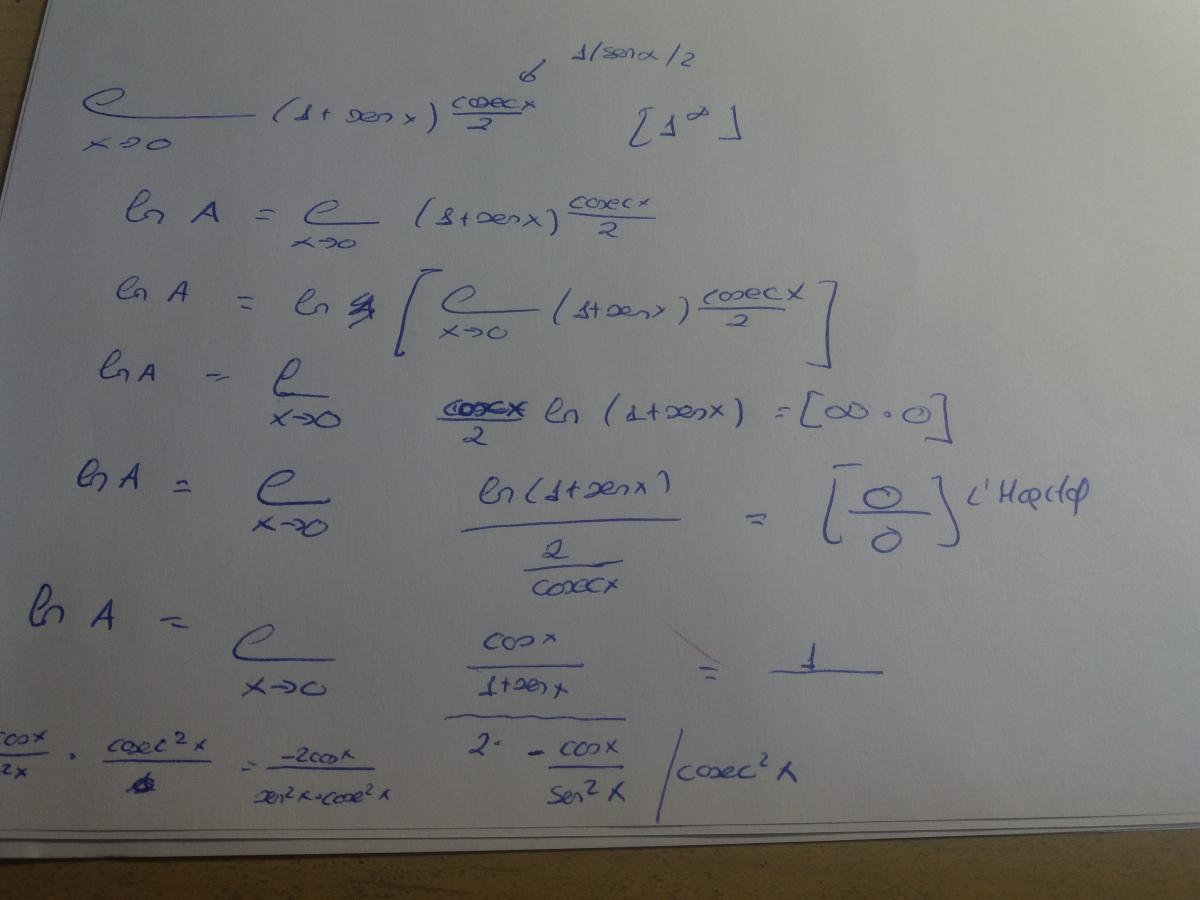 1/senx/2
l x→0 (1+senx) cosecx/2 [1^∞]
ln A = l x→0 (1+senx) cosecx/2
ln A = ln [ l x→0 (1+senx) cosecx/2 ]
ln A = l x→0 cosecx/2 ln (1+senx) = [∞·0]
ln A = l x→0 ln(1+senx) / 2/cosecx = [0/0] L'Hop
ln A = l x→0 cosx/1+senx / 2· -cosx/sen²x /cosec²x = 1/
cosx/²x · cosec²x/ = -2cosx/sen²x·cosec²x